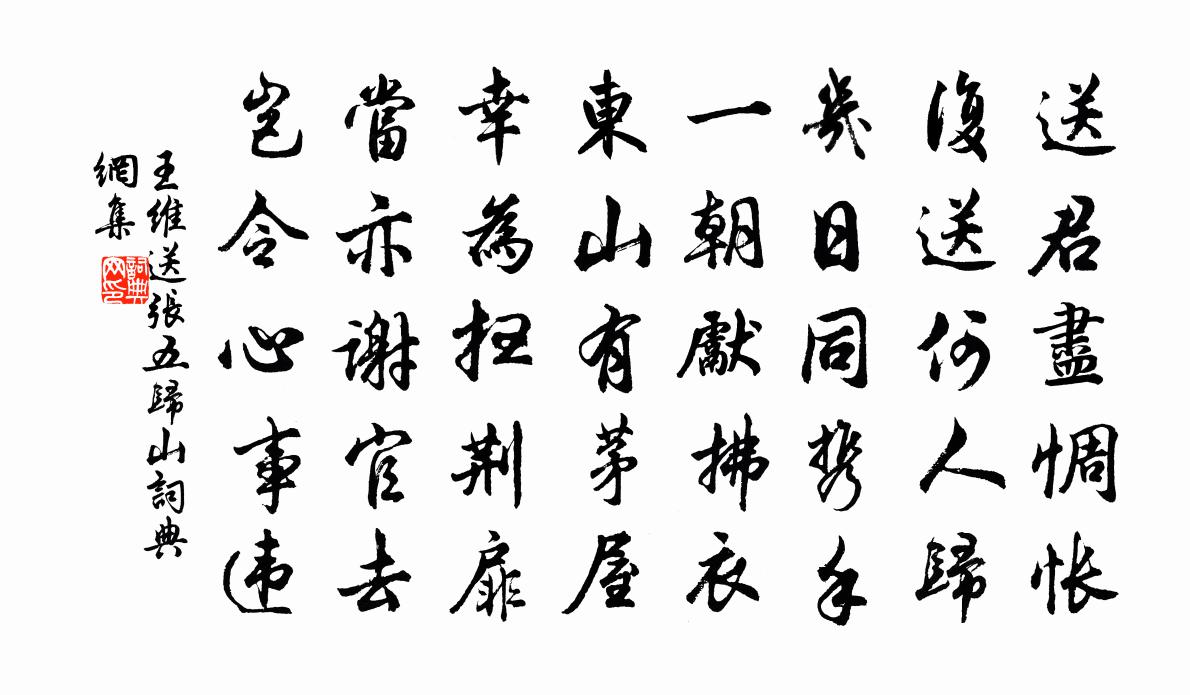 送君盡惆悵
復送何人歸
幾日同携手
一朝獻拂衣
東山有茅屋
幸為扫荆扉
當亦謝官去
豈令心事违
王維送張五歸山詞典
網集
詞典
网印